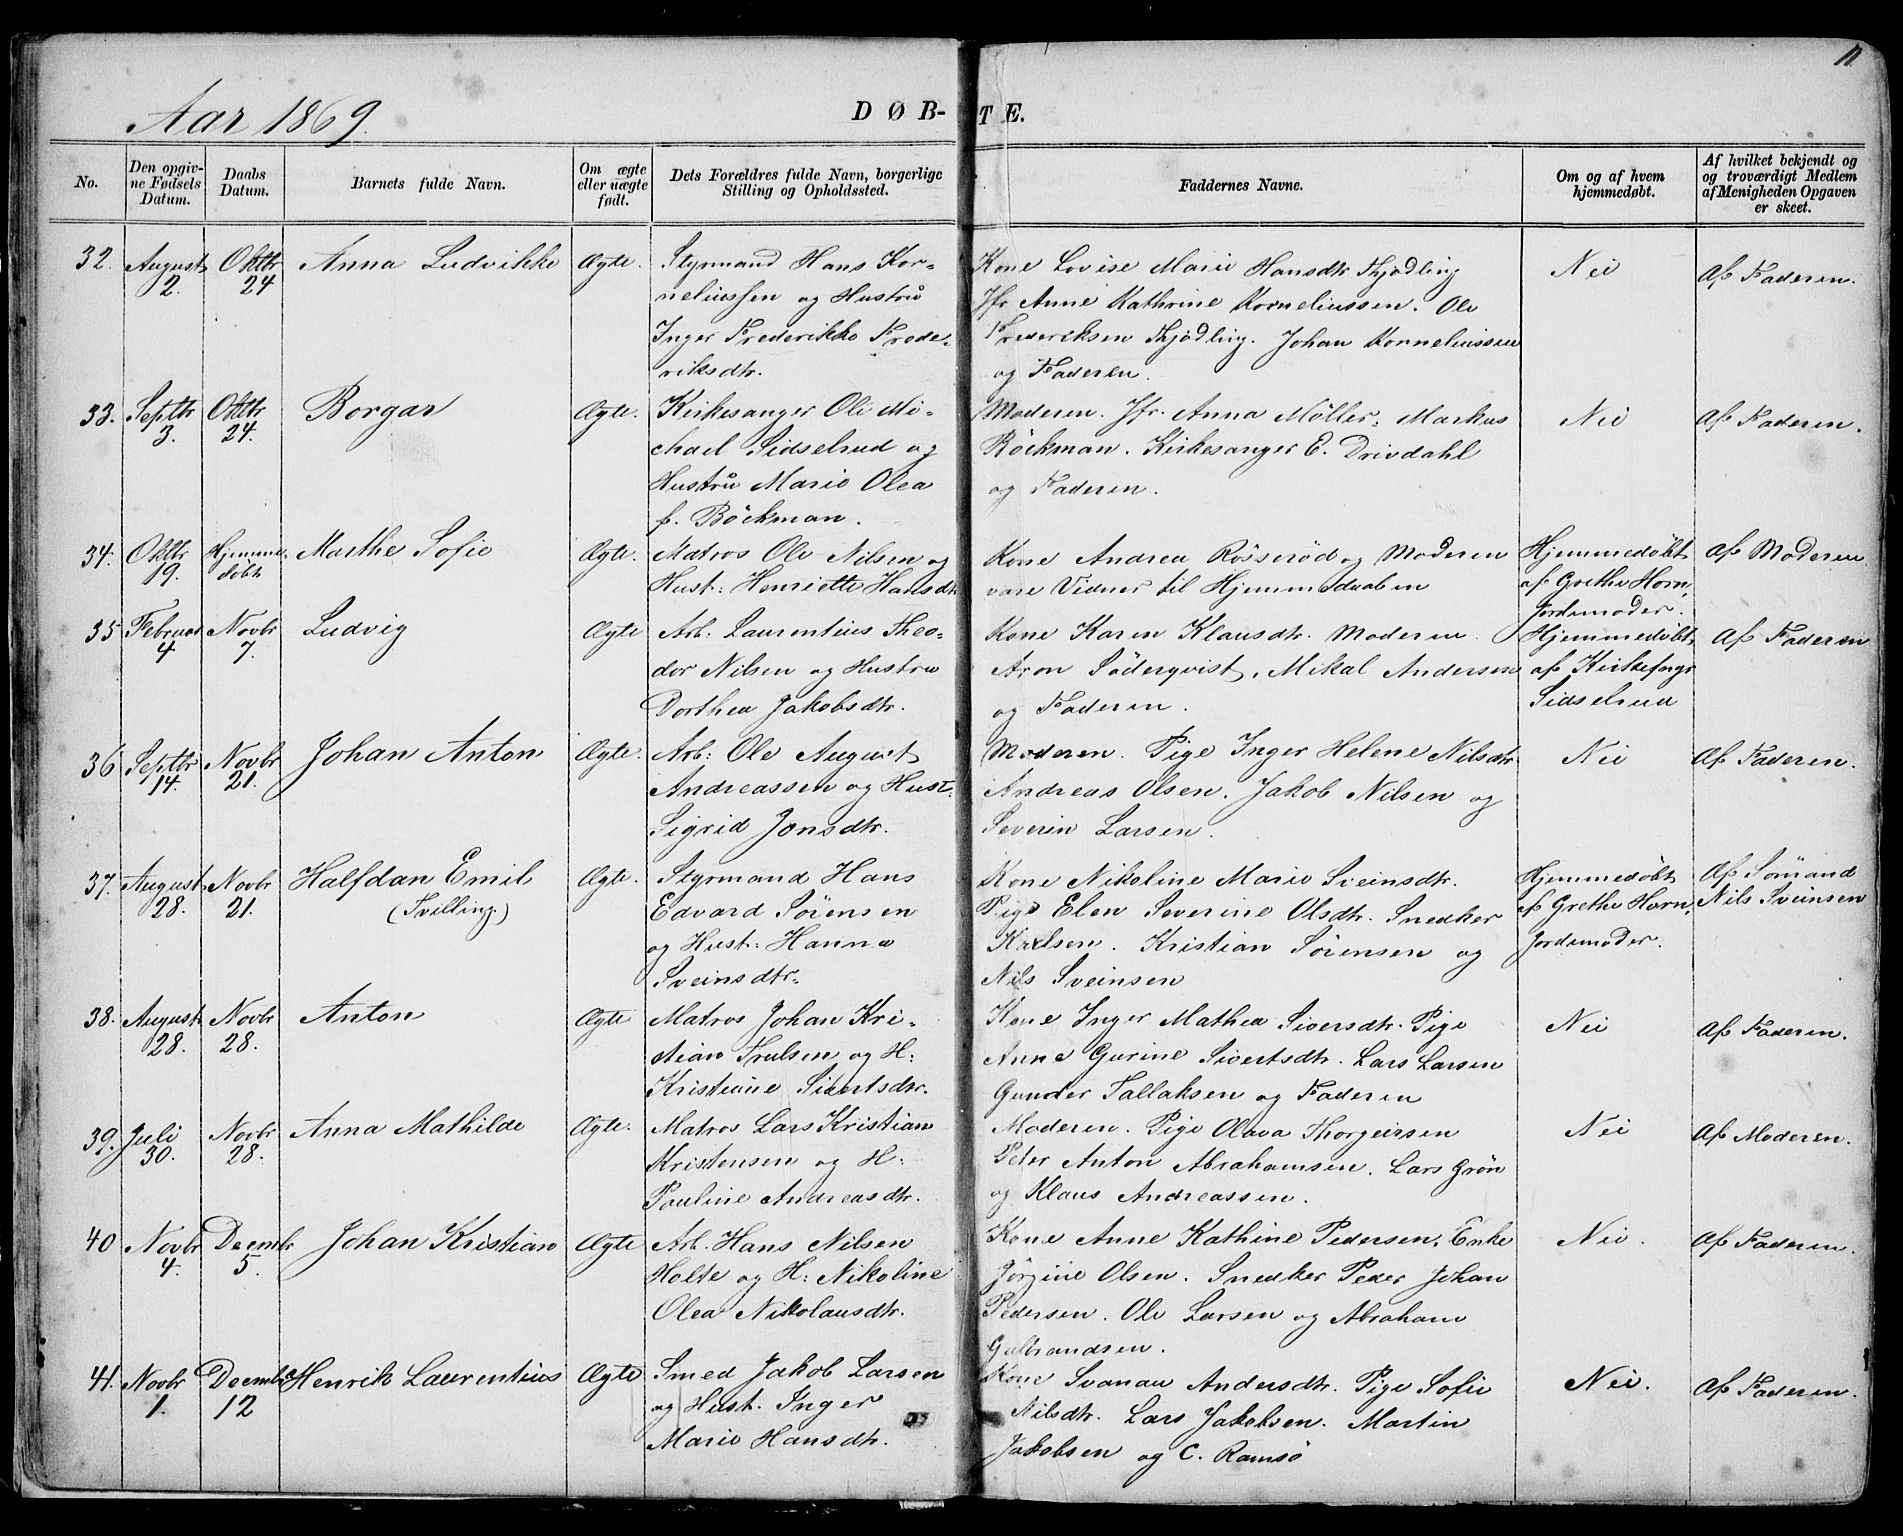 11
Aar 1869.
DØB-TE.
No.
Den opgiv-
ne Fødsels
Datum.
Daabs
Datum.
Barnets fulde Navn.
Om ægte
eller uægte
født.
Dets Forældres fulde Navn, borgerlige
Stilling og Opholdssted.
Faddernes Navne.
Om og af hvem
hjemmedøbt.
Af hvilket bekjendt og
og troværdigt Medlem
af Menigheden Opgaven
er skeet.
32. August 2. Oktbr 24 Anna Ludvikke Ægte.
Styrmand Hans Kor-
neliussen og Hustru
Inger Frederikke Frede-
riksdtr.
Kone Lovise Marie Hansdtr Thjødling
Jfr Anne Kathrine Korneliussen. Ole
Frederiksen Thjødling. Johan Korneliussen
og Faderen.
Nei
Af Faderen.
33. Septbr 3. Oktbr 24. Borgar Ægte.
Kirkesanger Ole Mi-
chael Sidselrud og
Hustru Marie Olea
f. Böckman.
Moderen. Jfr. Anna Møller. Markus
Böckman. Kirkesanger E. Drivdahl
og Faderen.
Nei
Af Faderen.
34. Oktbr 19. Hjemme-
døbt Marthe Sofie Ægte.
Matros Ole Nilsen og
Hust: Henriette Hansdtr
Kone Andrea Rösseröd og Moderen
vare Vidner til Hjemmedaaben
Hjemmedøbt
af Grethe Horn,
Jordemoder.
Af Moderen
35 Februar 4 Novbr 7. Ludvig Ægte
Arb. Laurentius Theo-
dor Nilsen og Hustru
Dorthea Jakobsdtr.
Kone Karen Klausdtr. Moderen.
Aron Söderqvist. Mikal Andersen
og Faderen.
Hjemmedøbt
af Kirkesngr
Sidselrud
Af Faderen
36 Septbr 14. Novbr 21. Johan Anton Ægte.
Arb: Ole August
Andreassen og Hust:
Sigrid Jonsdtr.
Moderen. Pige Inger Helene Nilsdtr
Andreas Olsen. Jakob Nilsen og
Severin Larsen.
Nei
Af Faderen.
37. August 28. Novbr 21. Halfdan Emil
(Tvilling) Ægte.
Styrmand Hans
Edvard Sörensen
og Hust: Hanna
Sveinsdtr.
Kone Nikoline Marie Sveinsdtr.
Pige Elen Severine Olsdtr. Snedker
Karlsen. Kristian Sörensen og
Nils Sveinsen
Hjemmedøbt
af Grethe Horn,
Jordemoder.
Af Sømand
Nils Sveinsen
38. August 28. Novbr 28. Anton Ægte
Matros Johan Kri-
stian Trulsen og H:
Kristiane Sivertsdtr.
Kone Inger Mathea Siversdtr. Pige
Anne Gurine Sivertsdtr. Lars Larsen
Gunder Tallaksen og Faderen
Nei
Af Faderen.
39. Juli 30. Novbr 28. Anna Mathilde Ægte.
Matros Lars Kristian
Kristensen og H:
Pauline Andreasdtr.
Moderen. Pige Olava Thorgeirsen
Peter Anton Abrahamsen. Lars Grön
og Klaus Andreassen.
Nei
Af Moderen.
40 Novbr 4. Decembr 5. Johan Kristian Ægte
Arb. Hans Nilsen
Holte og H: Nikoline
Olea Nikolausdtr.
Kone Anne Kathine Pedersen. Enke
Jörgine Olsen. Snedker Peder Johan
Pedersen. Ole Larsen og Abraham
Gulbrandsen.
Nei.
Af Faderen.
41. Novbr 1. Decembr 12 Henrik Laurentius Ægte
Smed Jakob Larsen
og Hust. Inger
Marie Hansdtr.
Kone Svanau Andersdtr. Pige Sofie
Nilsdtr. Lars Jakobsen. Martin
Jakobsen og C. Ramsö
Nei.
Af Faderen.